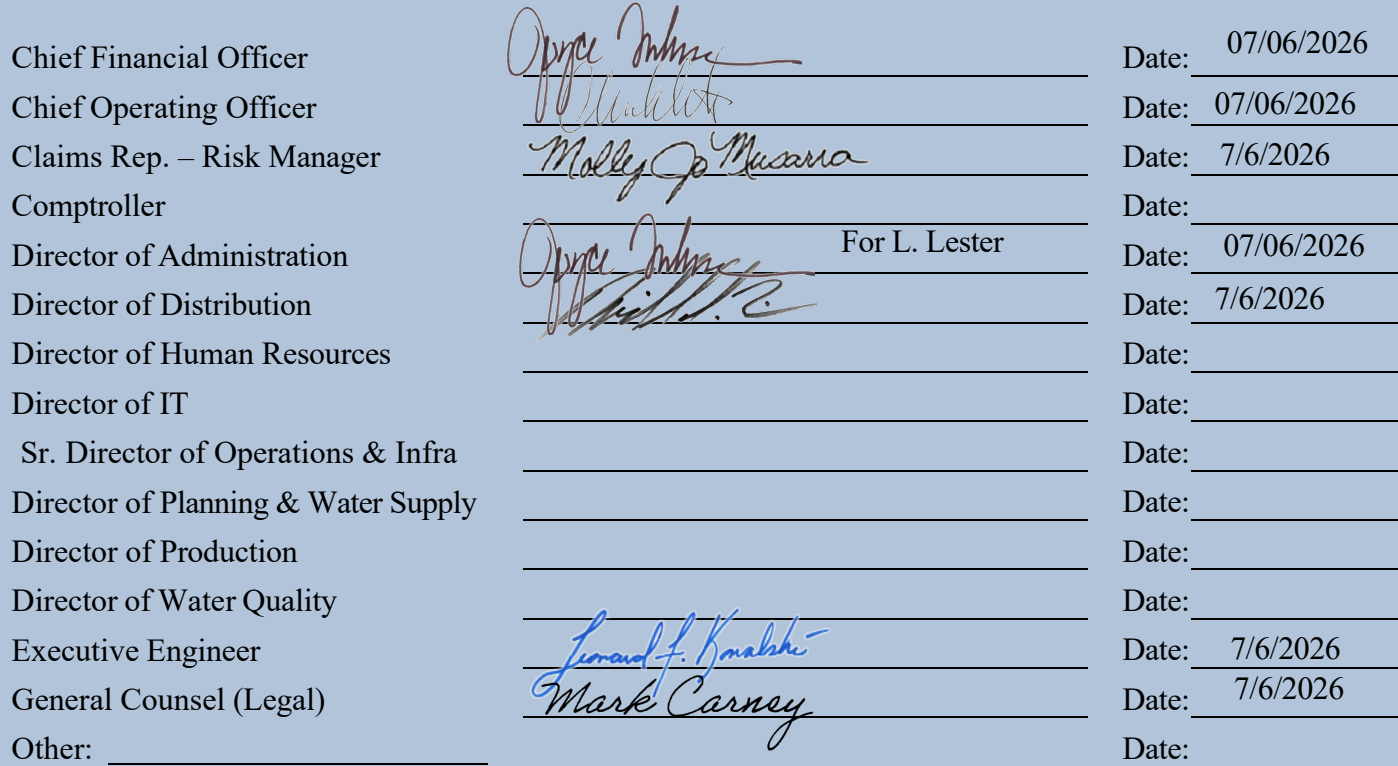 Chief Financial Officer Date: 07/06/2026
Chief Operating Officer Date: 07/06/2026
Claims Rep. – Risk Manager Molly Jo Musarra Date: 7/6/2026
Comptroller Date:
Director of Administration For L. Lester Date: 07/06/2026
Director of Distribution Date: 7/6/2026
Director of Human Resources Date:
Director of IT Date:
Sr. Director of Operations & Infra Date:
Director of Planning & Water Supply Date:
Director of Production Date:
Director of Water Quality Date:
Executive Engineer Leonard F. Kowalski Date: 7/6/2026
General Counsel (Legal) Mark Carney Date: 7/6/2026
Other: Date: